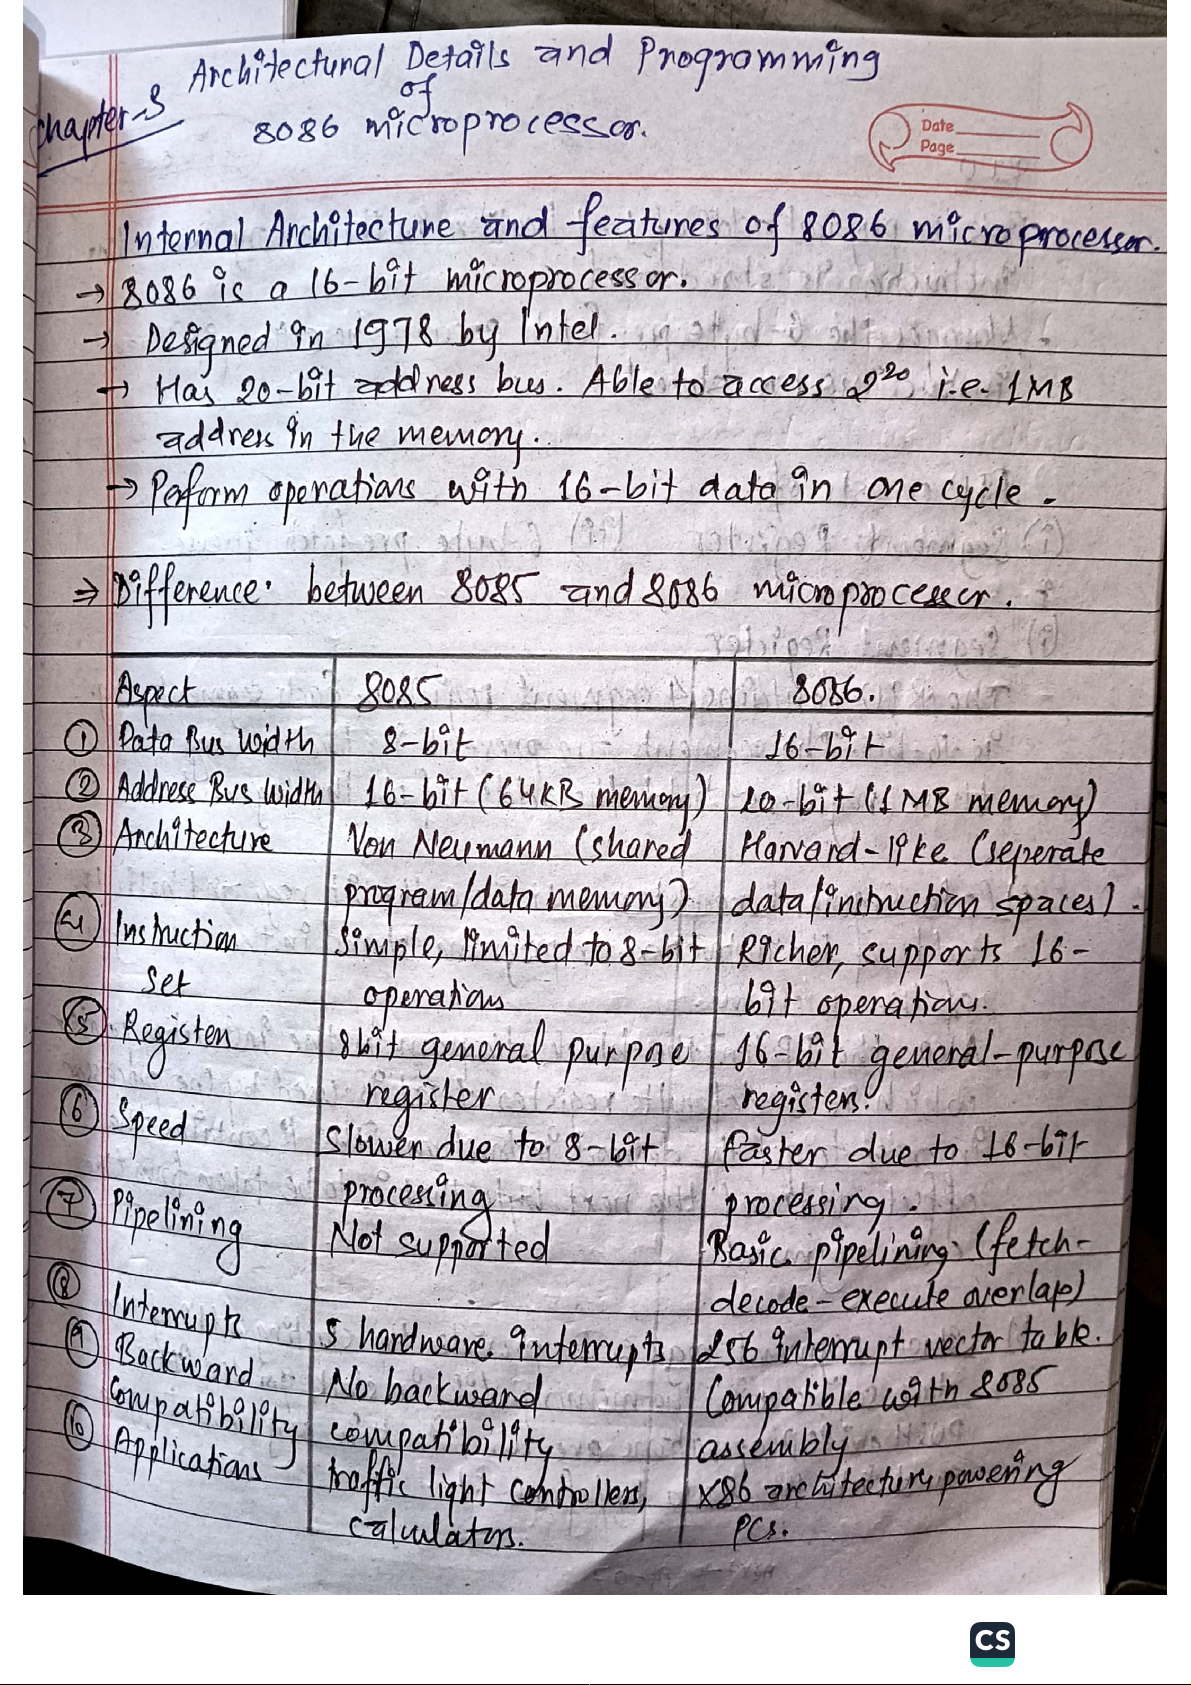 Chapter-3
Architectural Details and Programming
of
8086 microprocessor.
Date
Page
Internal Architecture and features of 8086 microprocessor.
→ 8086 is a 16-bit microprocessor.
→ Designed in 1978 by Intel.
→ Has 20-bit address bus. Able to access 2^20 i.e. 1MB
address in the memory.
→ Perform operations with 16-bit data in one cycle.
⇒ Difference between 8085 and 8086 microprocessor.
Aspect 8085 8086.
① Data Bus Width 8-bit 16-bit
② Address Bus Width 16-bit (64KB memory) 20-bit (1MB memory)
③ Architecture Von Neumann (shared Harvard-like (seperate
program/data memory) data/instruction spaces).
④ Instruction Simple, limited to 8-bit Richer, supports 16-
Set operations bit operations.
⑤ Registers 8bit general purpose 16-bit general-purpose
register registers.
⑥ Speed Slower due to 8-bit faster due to 16-bit
processing processing.
⑦ Pipelining Not supported Basic pipelining (fetch-
decode-execute overlap)
⑧ Interrupts 5 hardware interrupts 256 interrupt vector table.
⑨ Backward No backward Compatible with 8085
Compatibility compatibility assembly
⑩ Applications traffic light controllers, x86 architecture powering
calculators. PCs.
CS